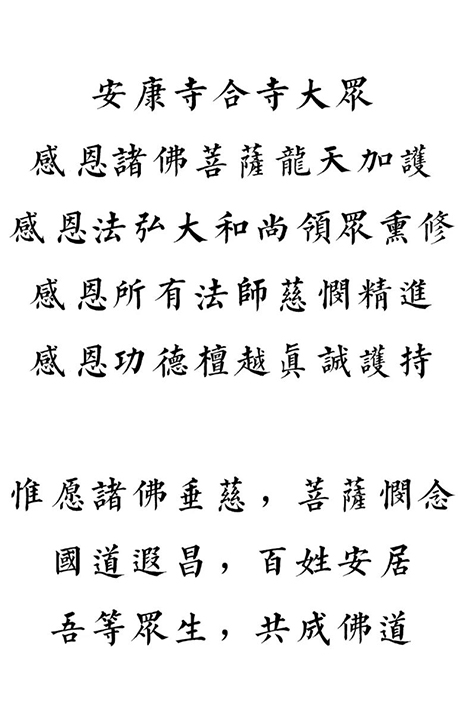 安康寺合寺大眾
感恩諸佛菩薩龍天加護
感恩法弘大和尚領眾熏修
感恩所有法師慈憫精進
感恩功德檀越眞誠護持
惟愿諸佛垂慈，菩薩憫念
國道遐昌，百姓安居
吾等眾生，共成佛道